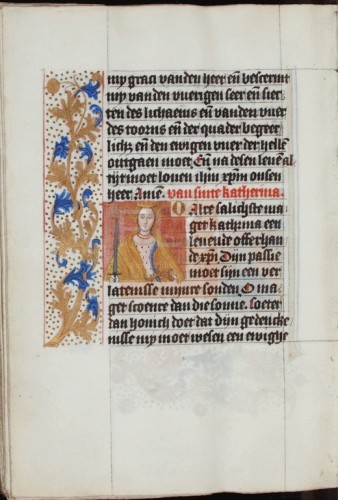 my graci vanden heer eñ bescermt
my van den vuerigen
des lichaems eñ vanden vuer
des toorns eñ der quader begeer
lich, eñ den ewigen vuer der hellē
ontgaen moet Eñ na desen levē al
tijt moet loven ihm xpm onsen
heer. Amē. van sinte katherina.
O Alre salichste ma
get katherina een
levende offerhan
de xpi. Dijn passie
moet sijn een ver
latenisse mijnre sonden O ma
get scoenre dan die sonne. soeter
dan honich doet dat dijn gedencke
nisse my moet wesen een ewighe